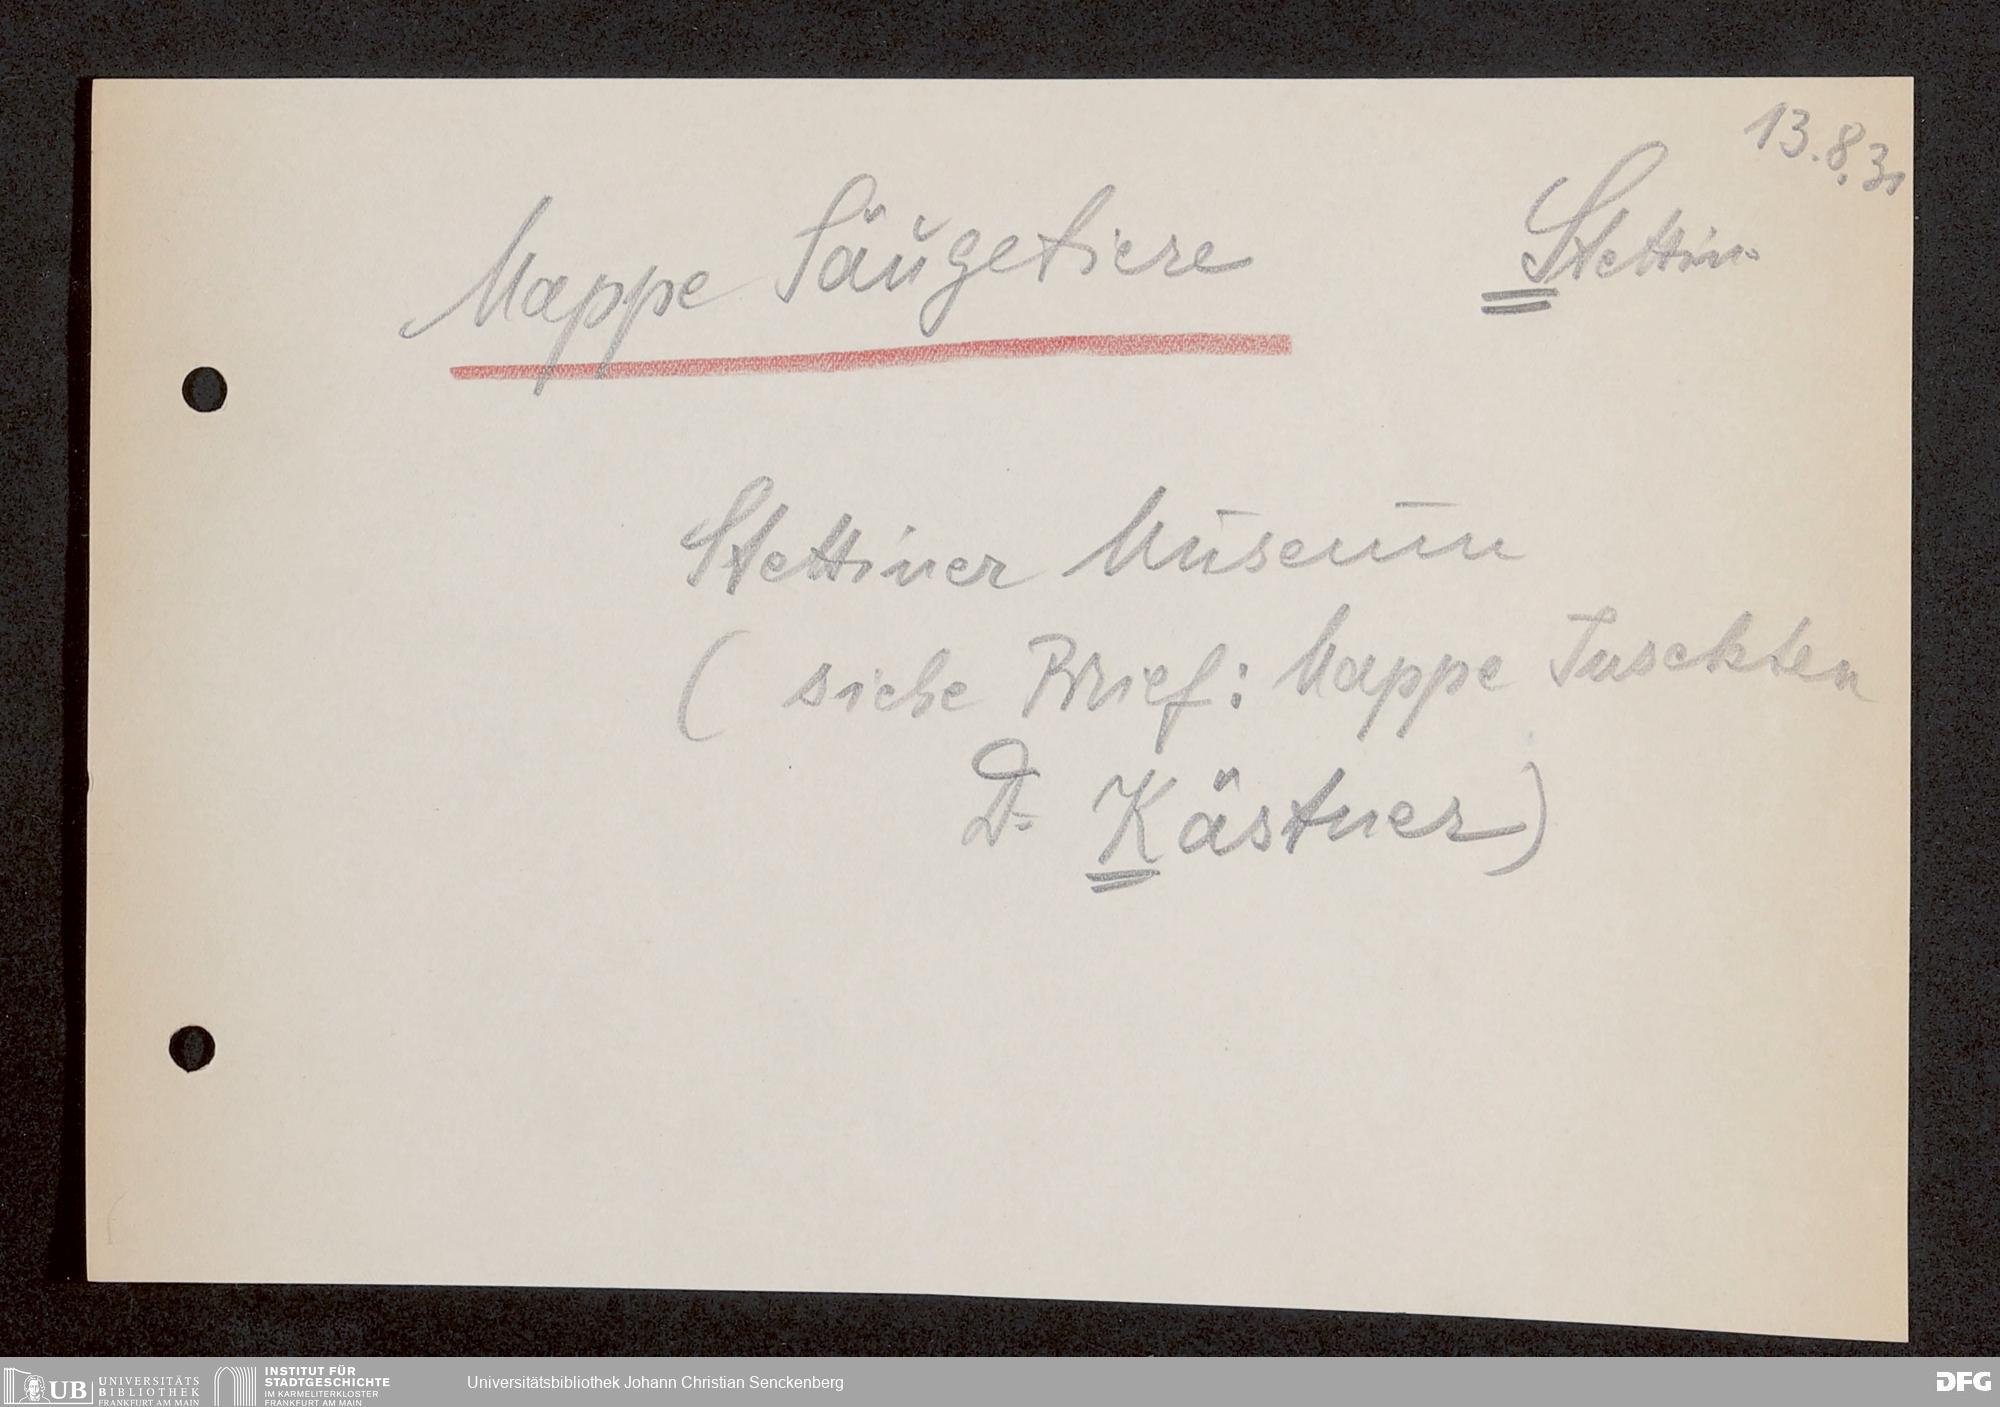 13.8.31
Mappe Säugetiere
Stettin.
Stettiner Museum
( siehe Brief: Mappe Insekten
Dr. Kästner)
UB UNIVERSITÄTS
BIBLIOTHEK
FRANKFURT AM MAIN
INSTITUT FÜR
STADTGESCHICHTE
IM KARMELITERKLOSTER
FRANKFURT AM MAIN
Universitätsbibliothek Johann Christian Senckenberg
DFG